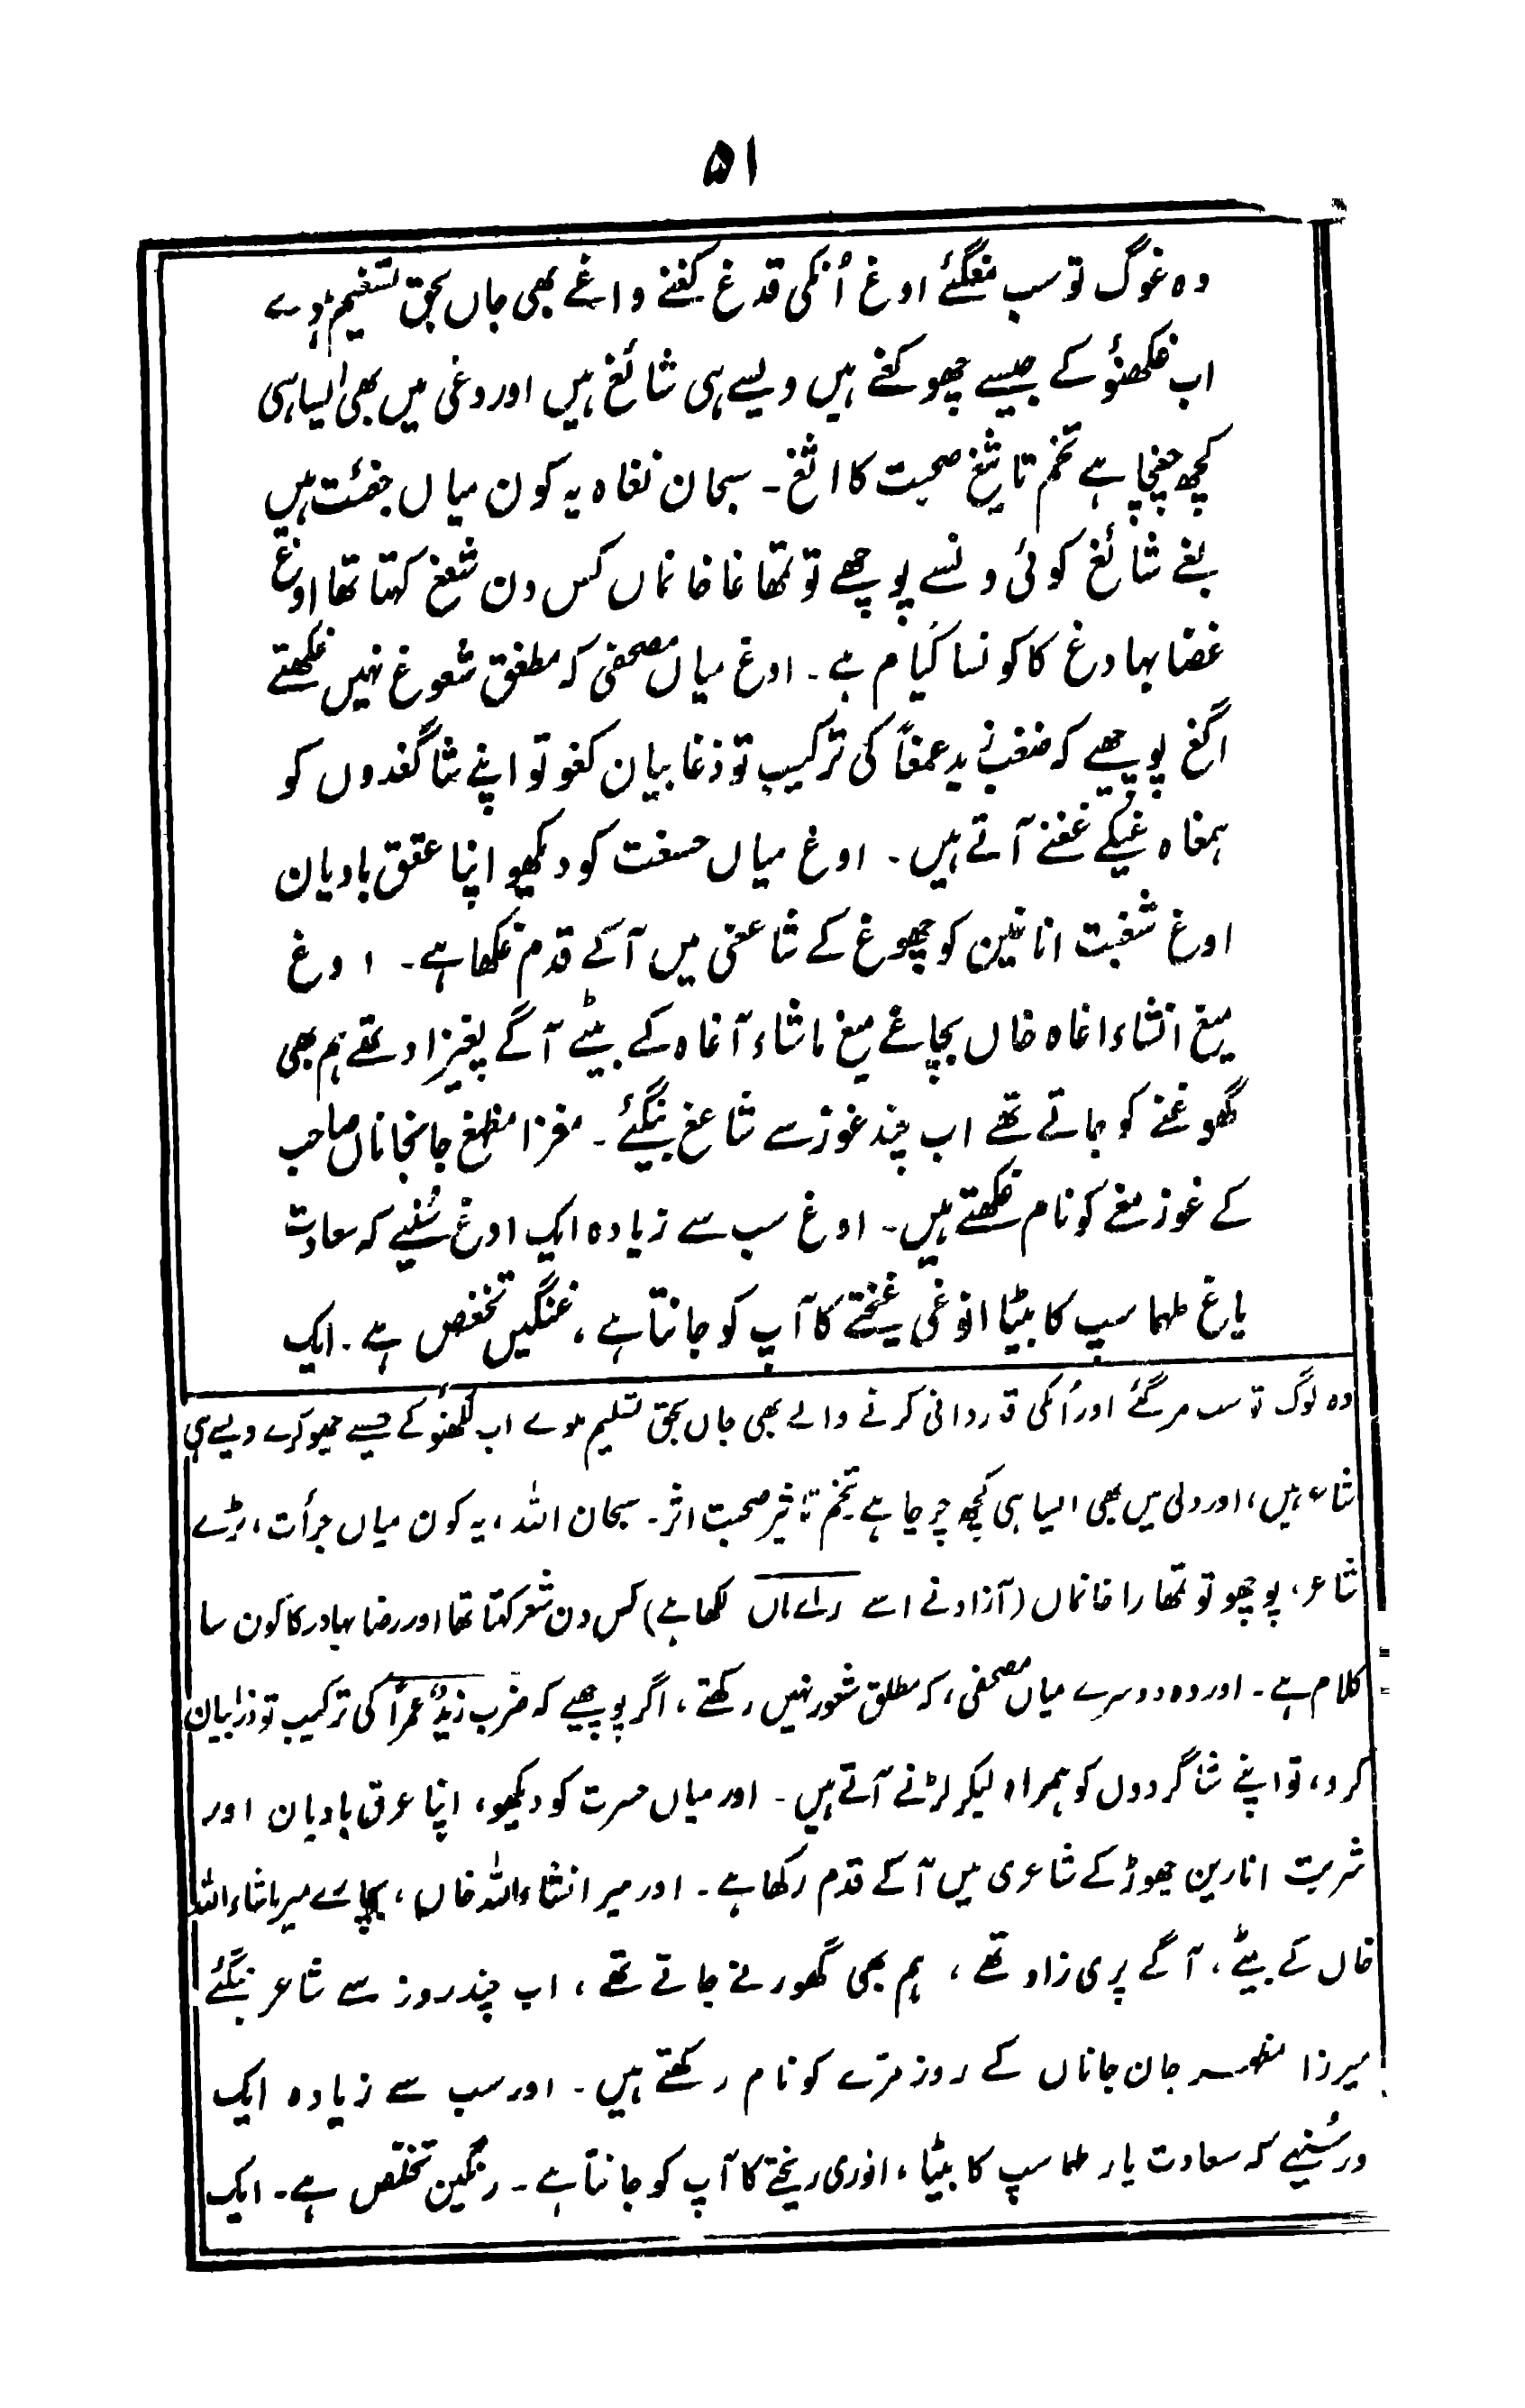 ۵۱
وہ غوگ تو سب مغگئے اوغ اُنکی قدغ کغنے واغے بھی جاں بحق تسغیم ہوے
اب غکھنؤ کے جیسے چھوکغے ہیں ویسے ہی شائغ ہیں اور دغی میں بھی ایسا ہی
کچھ چغچا ہے تخم تاثیغ صحبت کا اثغ ۔ سبحان نغاہ یہ کون میاں جغئت ہیں
بغے شائغ کوئی ونسے پوچھے تو تمھاغا خانماں کس دن شعغ کہتا تھا اوغ
غضا بہادغ کا کونسا کیام ہے ۔ اوغ میاں مصحفی کہ مطغق شعوغ نہیں غکھتے
اگغ پوچھیے کہ ضغب زید عمغاً کی ترکیب تو ذغا بیان کغو تو اپنے شاگغدوں کو
ہمغاہ غیکے غغنے آتے ہیں ۔ اوغ میاں حسغت کو دیکھو اپنا عقق بادیان
اوغ شغبت اناغین کو چھوغ کے شاعغی میں آکے قدم غکھا ہے ۔ اوغ
میغ انشاء اغاہ خاں بچاغے میغ ماشاء آغاہ کے بیٹے آگے پغیزاد تھے ہم بھی
گھوغنے کو جاتے تھے اب چند غوز سے شاعغ بنگئے ۔ مغزا مظہغ جانجاناں صاحب
کے غوز مغے کو نام غکھتے ہیں ۔ اوغ سب سے زیادہ ایک اوغ سُنیے کہ سعادت
یاغ طہماسپ کا بیٹا انوغی غیختے کا آپ کو جانتا ہے ، غنگیں تخغص ہے ۔ ایک
وہ لوگ تو سب مرگئے اور اُنکی قدردانی کرنے والے بھی جاں بحق تسلیم ہوے اب لکھنؤ کے جیسے چھوکرے ویسے ہی
شاعر ہیں ، اور دلی میں بھی ایسا ہی کچھ چرچا ہے تخم تاثیر صحبت اثر ۔ سبحان اللہ ، یہ کون میاں جرأت ، بڑے
شاعر ، پوچھو تو تمھارا خانماں (آزاد نے اسے رائے ماں لکھا ہے) کس دن شعر کہتا تھا اور رضا بہادر کا کون سا
کلام ہے ۔ اور وہ دوسرے میاں مصحفی ، کہ مطلق شعور نہیں رکھتے ، اگر پوچھیے کہ ضرب زیدٌ عمراً کی ترکیب تو ذرا بیان
کرو ، تو اپنے شاگردوں کو ہمراہ لیکر لڑنے آتے ہیں ۔ اور میاں حسرت کو دیکھو ، اپنا عرق بادیان اور
شربت انارین چھوڑ کے شاعری میں آکے قدم رکھا ہے ۔ اور میر انشاء اللہ خاں ، بچارے میر ماشاء اللہ
خاں کے بیٹے ، آگے پری زاد تھے ، ہم بھی گھورنے جاتے تھے ، اب چند روز سے شاعر بنگئے
میرزا مظہر جان جاناں کے روز مرّے کو نام رکھتے ہیں ۔ اور سب سے زیادہ ایک
ور سُنیے کہ سعادت یار طہماسپ کا بیٹا ، انوری ریختے کا آپ کو جانتا ہے ۔ رنگین تخلّص ہے ۔ ایک